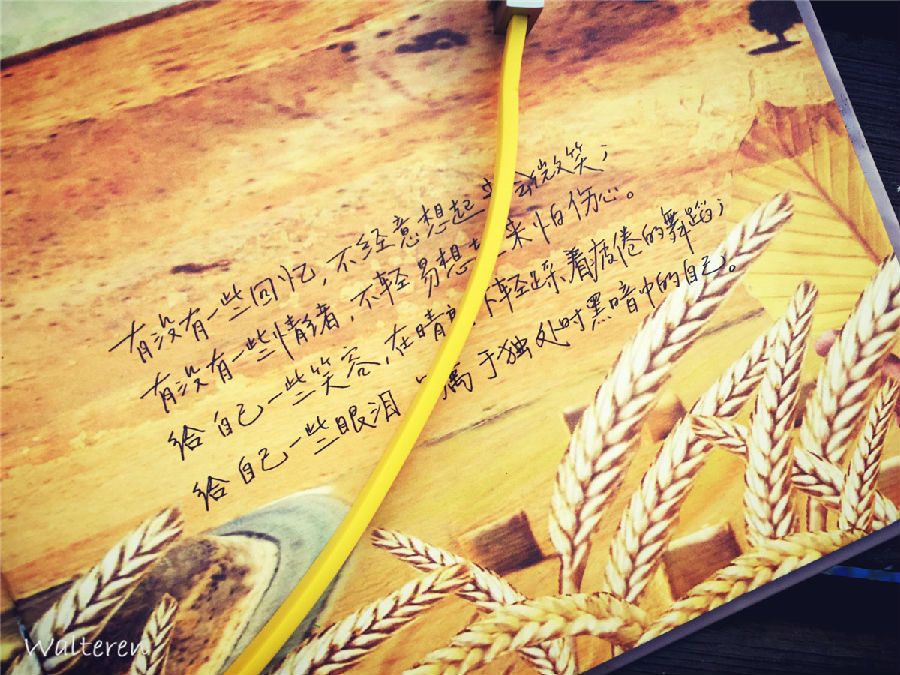 有没有一些回忆,不经意想起 微笑;
有没有一些情绪,不轻易想 来怕伤心。
给自己一些笑容,在晴 下轻踩着疲倦的舞蹈;
给自己一些眼泪, 属于独处时黑暗中的自己。
Walteren